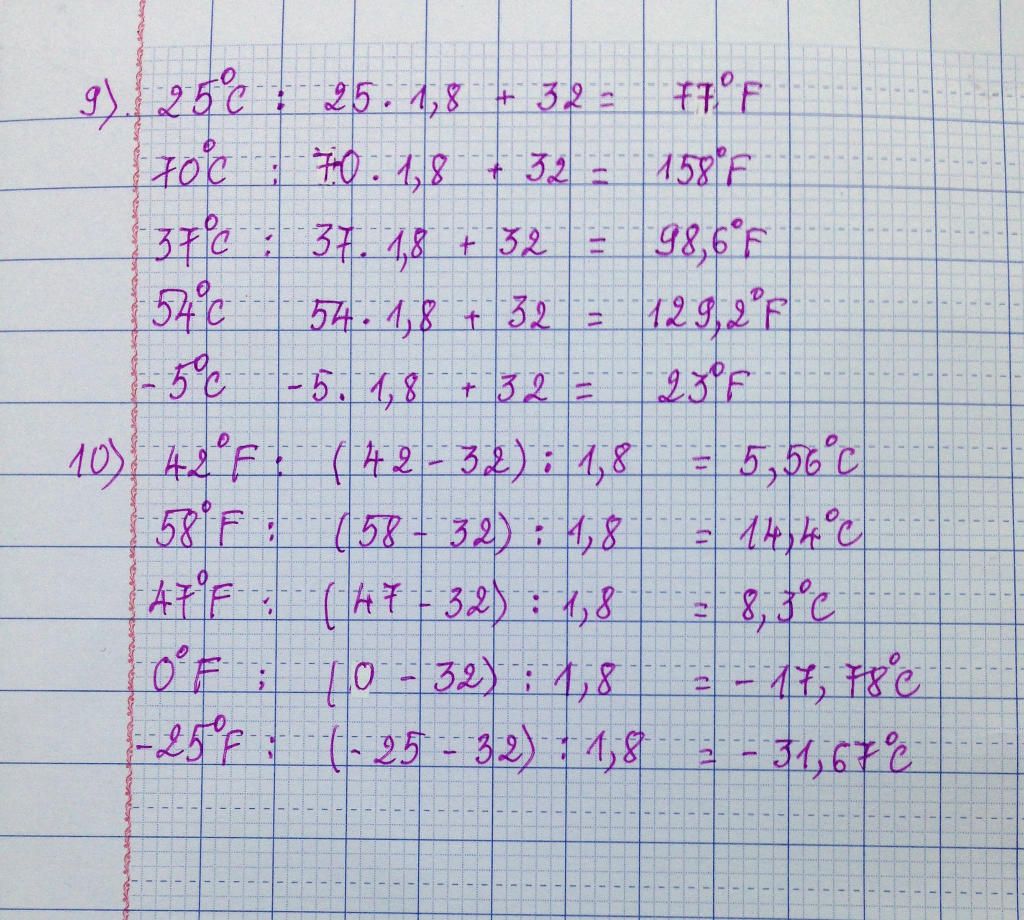 9). 25°C : 25 . 1,8 + 32 = 77°F
70°C : 70 . 1,8 + 32 = 158°F
37°C : 37 . 1,8 + 32 = 98,6°F
54°C 54 . 1,8 + 32 = 129,2°F
-5°C -5 . 1,8 + 32 = 23°F
10) 42°F : (42 - 32) : 1,8 = 5,56°C
58°F : (58 - 32) : 1,8 = 14,4°C
47°F : (47 - 32) : 1,8 = 8,3°C
0°F : (0 - 32) : 1,8 = -17,78°C
-25°F : (-25 - 32) : 1,8 = -31,67°C